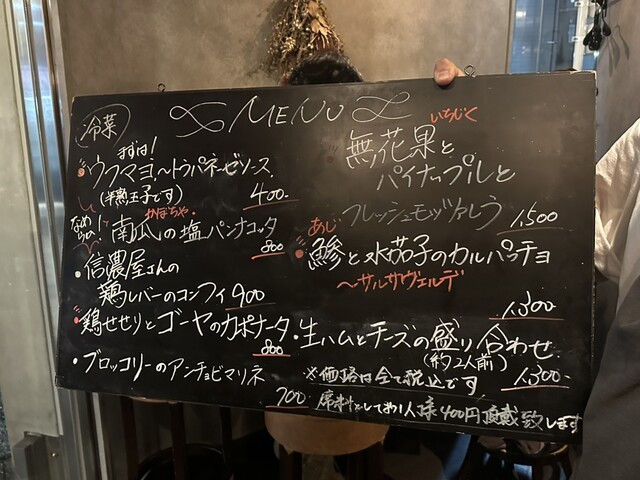 MENU
冷菜
まずは!
ウフマヨ、〜トラパネーゼソース
(半熟玉子です)
400-
なめらか!
かぼちゃ
南瓜の塩パンナコッタ
800
・信濃屋さんの
鶏レバーのコンフィ 900
鶏せせりとゴーヤのカポナータ
800
・ブロッコリーのアンチョビマリネ
700
いちじく
無花果と
パイナップルと
フレッシュモッツァレラ
1,500
あじ
鯵と水茄子のカルパッチョ
〜サルサヴェルデ
1,300
・生ハムとチーズの盛り合わせ
(約2人前)
1,300-
※価格は全て税込です
席料としてお1人様400円頂戴致します